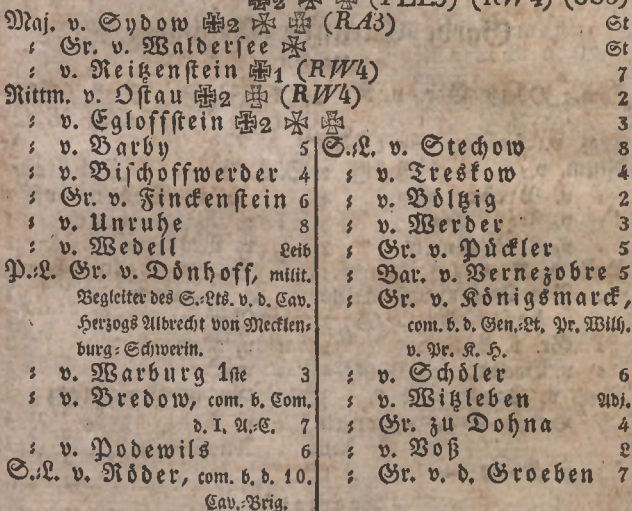 Maj. v. Sydow ✠2 ✠ (RA3) St
⸗ Gr. v. Waldersee ✠ St
⸗ v. Reitzenstein ✠1 (RW4) 7
Rittm. v. Ostau ✠2 ✠ (RW4) 2
⸗ v. Egloffstein ✠2 ✠ ✠ 3
⸗ v. Barby 5
⸗ v. Bischoffwerder 4
⸗ Gr. v. Finckenstein 6
⸗ v. Unruhe 8
⸗ v. Wedell Leib
P.⸗L. Gr. v. Dönhoff, milit.
Begleiter des S.⸗Lts. v. d. Cav.
Herzogs Albrecht von Mecklen⸗
burg⸗Schwerin.
⸗ v. Warburg 1ste 3
⸗ v. Bredow, com. b. Com.
d. I. A.⸗C. 7
⸗ v. Podewils 6
S.⸗L. v. Röder, com. b. d. 10.
Cav.⸗Brig.
S.⸗L. v. Stechow 8
⸗ v. Treskow 4
⸗ v. Böltzig 2
⸗ v. Werder 3
⸗ Gr. v. Pückler 5
⸗ Bar. v. Vernezobre 5
⸗ Gr. v. Königsmarck,
com. b. d. Gen.⸗Lt. Pr. Wilh.
v. Pr. K. H.
⸗ v. Schöler 6
⸗ v. Witzleben Adj.
⸗ Gr. zu Dohna 4
⸗ v. Voß L
⸗ Gr. v. d. Groeben 7